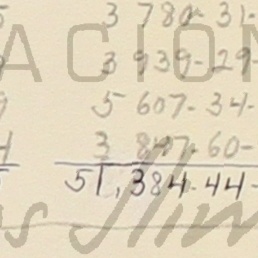 5 3 780- 31-
ACION
3 939- 29-
9 5 607- 34-
4 3 847. 60-
51,384.44-